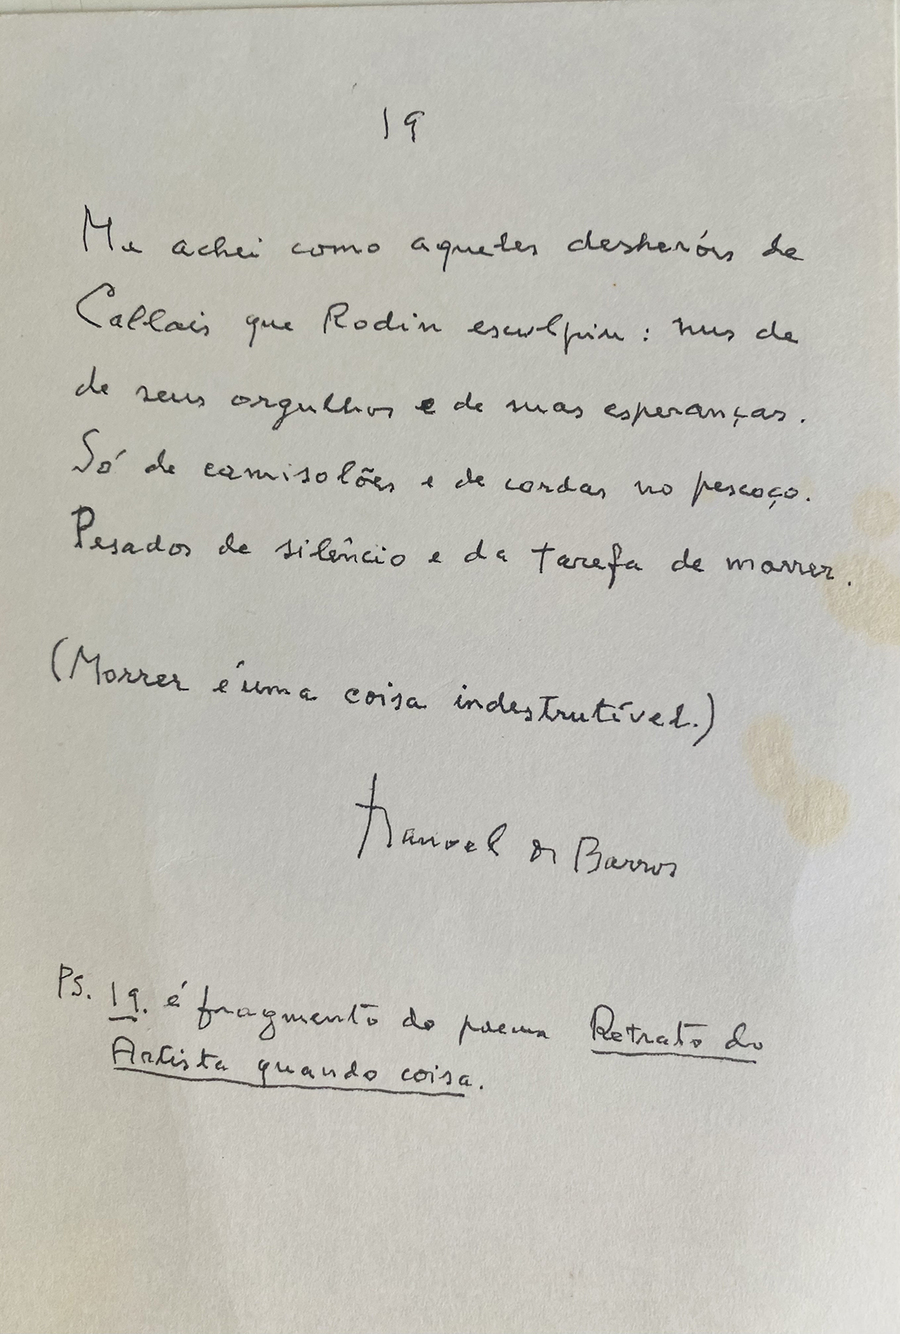 19
Me achei como aqueles desheróis de
Callais que Rodin esculpiu: nus de
de seus orgulhos e de suas esperanças.
Só de camisolões e de cordas no pescoço.
Pesados de silêncio e da tarefa de morrer.
(Morrer é uma coisa indestrutível.)
Manoel de Barros
PS. 19. é fragmento do poema Retrato do
Artista quando coisa.